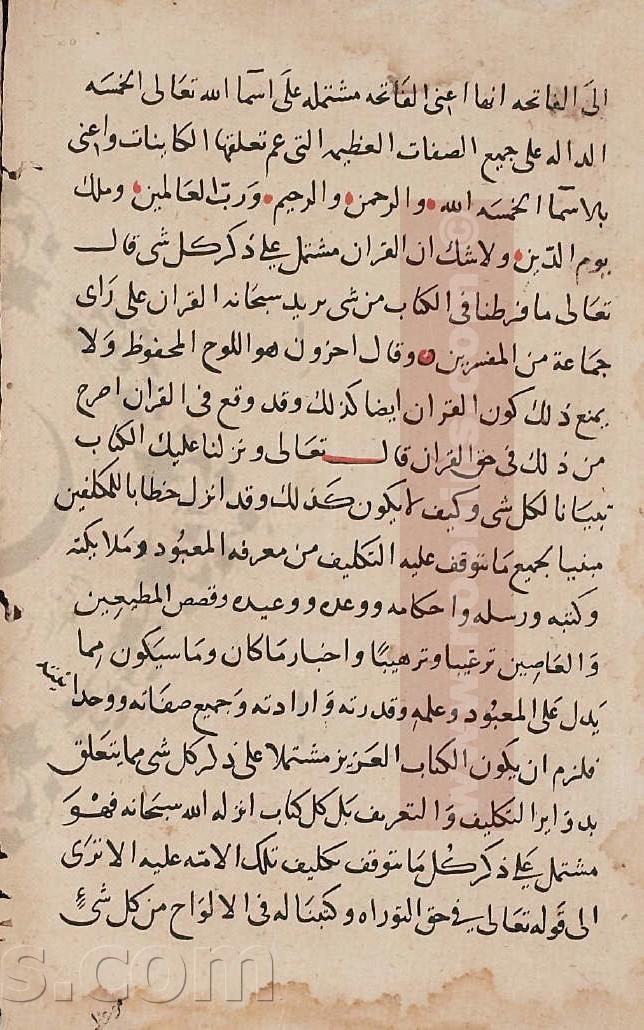 الى الفاتحه انها اعنى الفاتحه مشتمله على اسما الله تعالى الخمسه
الداله على جميع الصفات العظيمه التى عم تعلقها الكاينات واعنى
بالاسما الخمسه الله والرحمن والرحيم ورب العالمين وملك
يوم الدين ولا شك ان القران مشتمل على ذكر كل شى قال
تعالى ما فرطنا فى الكتاب من شى يريد سبحانه القران على راى
جماعة من المفسرين وقال اخرون هو اللوح المحفوظ ولا
يمنع ذلك كون القران ايضا كذلك وقد وقع فى القران اصرح
من ذلك فى حق القران قال تعالى ونزلنا عليك الكتاب
تبيانا لكل شى وكيف لا يكون كذلك وقد انزل خطابا للمكلفين
مبنيا بجميع ما تتوقف عليه التكليف من معرفه المعبود وملايكته
وكتبه ورسله واحكامه ووعده ووعيده وقصص المطيعين
والعاصين ترغيبا وترهيبًا واخبار ما كان وما سيكون مما
يدل على المعبود وعلمه وقدرته وارادته وجميع صفاته ووحدانيته
فلزم ان يكون الكتاب العزيز مشتملا على ذكر كل شى مما يتعلق
بدواير التكليف والتعريف بل كل كتاب انزله الله سبحانه فهو
مشتمل على ذكر كل ما تتوقف تكليف تلك الامه عليه الا ترى
الى قوله تعالى في حق التوراه وكتبنا له فى الالواح من كل شئ
s.com